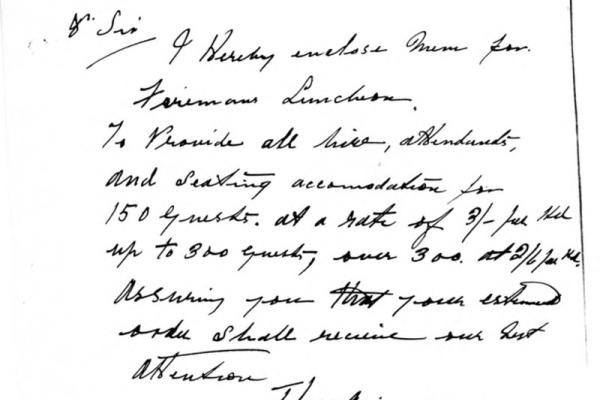 Dr Sir
I Hereby enclose Menu for
Foremans Luncheon.
To Provide all hire, attendants,
and seating accomodation for
150 guests. at a rate of 3/- per Hd
up to 300 guests, over 300. at 2/6 per Hd.
Assuring you that your esteemed
order shall receive our best
attention